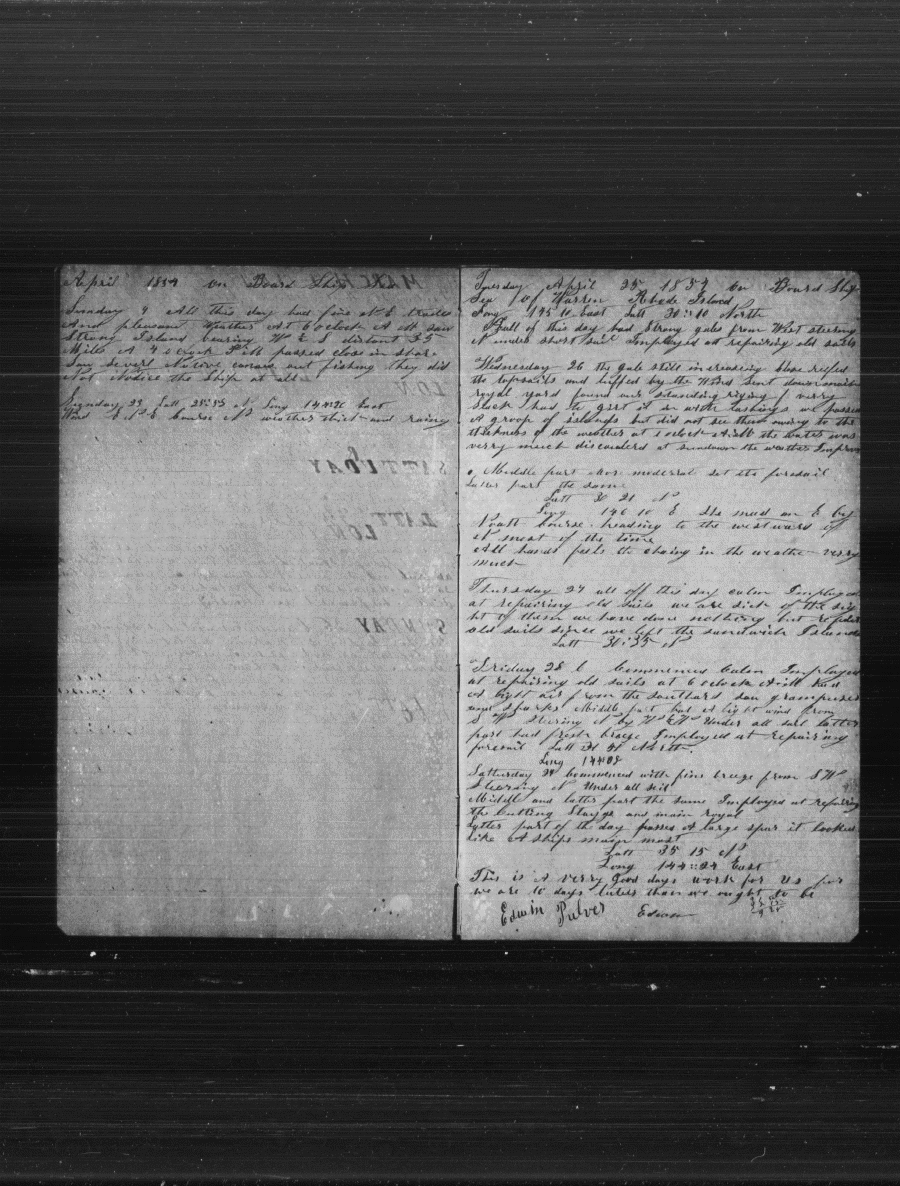 April 1854 on Board Ship
Sunday 9 All this day had fine N E trades
And pleasant Weather At 6 oclock A M saw
Strong Island bearing W & S distant 35
Mills A 4 oclock P M passed close in shore
Saw severl Native canoes out fishing they did
Not Notice the Ship at all
Sunday 23 Latt 25::35 N Long 144::36 East
Wind E N E Course N weather thick and rainy
Tuesday April 25 1854 On Board Ship
Sea of Warren Rhode Island
Long 145 10 East Latt 30::10 North
All of this day had Strong gales from West steering
N under short sail Imployed at repairing old sails
Wednesday 26 the gale still increasing close reefed
the topsails and luffed by the Wind Sent down main
royal yard found our standing riging very
slack had to girt it in with lashings we passed
A groop of islands but did not see them owing to the
thickness of the weather at 1 oclock the water was
verry much discoulerd at sundown the weather Improv
Middle part mor moderat set the foresail
Later part the same
Latt 30 21 N
Long 146 10 E She mad an E by
North Course heading to the westward of
N most of the time
All hands feels the chaing in the weather verry
much
Thursday 27 all off this day calm Imployed
at repairing old sails we are sick of the sig
ht of them we have done nothing but repair
old sails since we left the sandwich Islands
Latt 30::35 N
Friday 28 Commences Calm Imployed
at repairing old sails at 6 oclock had
A light air from the southard saw grampuses
and sharks Middle part had A light wind from
S W Steering N by W Under all sail latter
part had fresh breeze Imployed at repairing
foresail Latt North.
Long 144::08
Satturday Commenced with fine breeze from S W
Stearing N Under all sail
Middle and latter part the same Imployed at repairing
the cutting Stayge and main royal
Latter part of the day passed A large spar it looked
like A ships main mast
Latt 35 15 N
Long 144::24 East
This is A verry good days work for Us for
we are 10 days later than we ought to be
Edwin Pulver Edwin